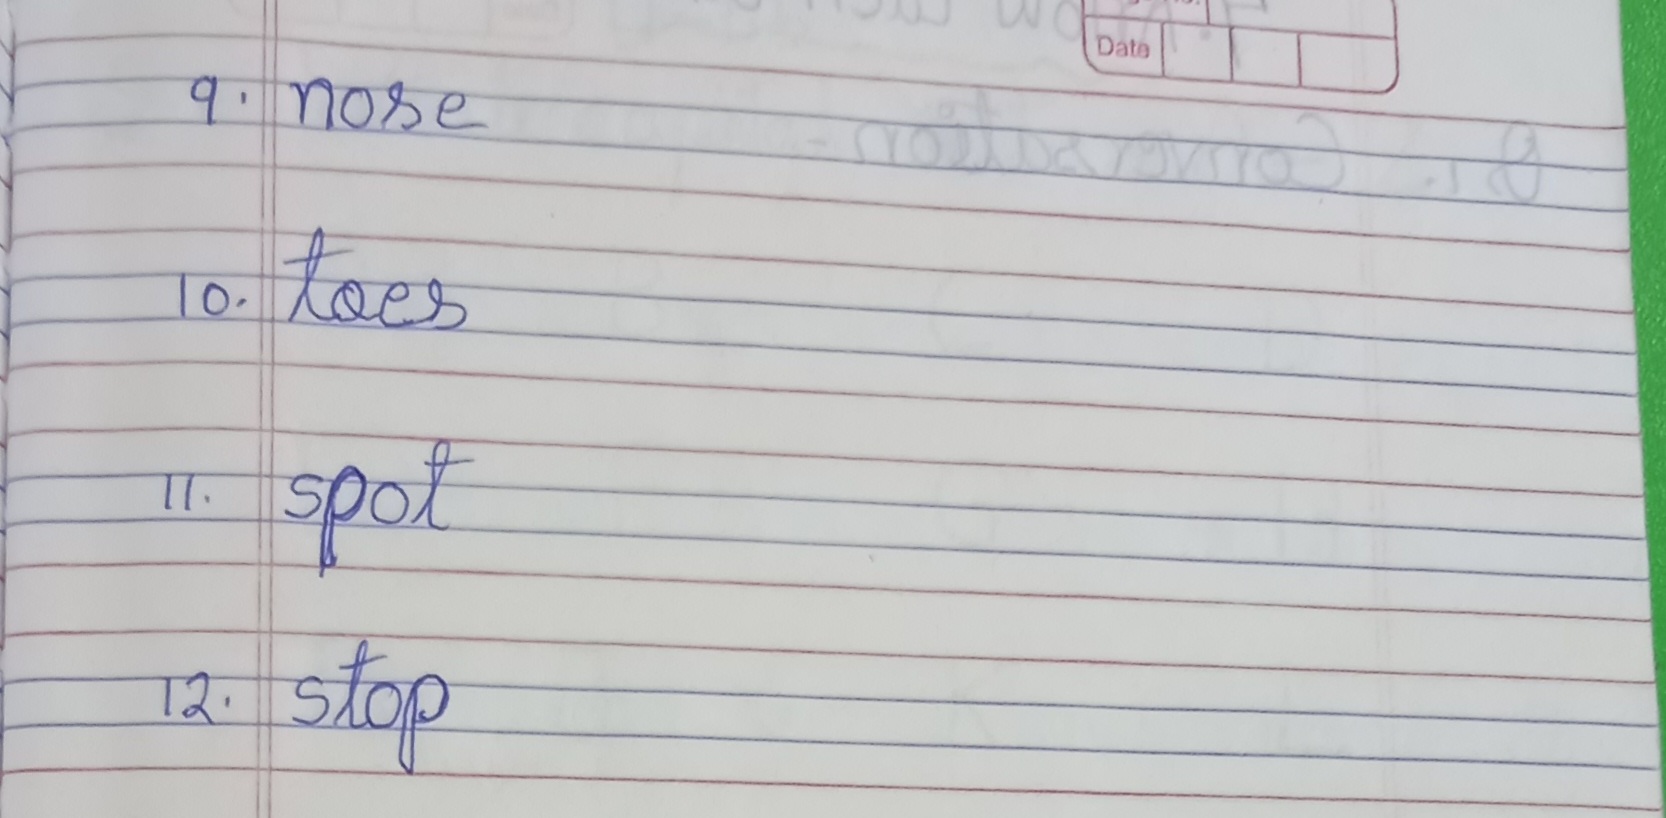 Date
9. nose
10. toes
11. spot
12. stop